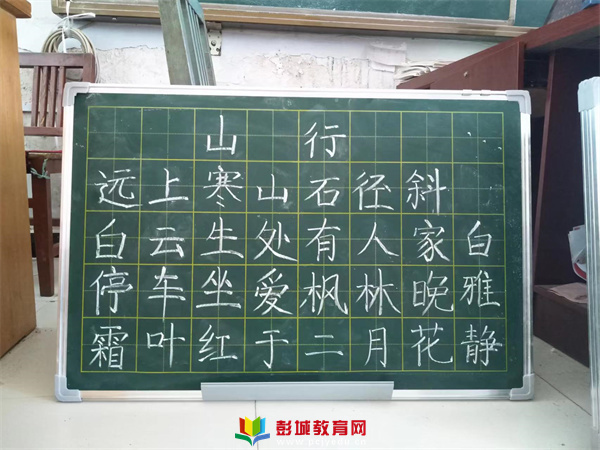 山行
远上寒山石径斜
白云生处有人家
停车坐爱枫林晚
霜叶红于二月花
白雅静
彭城教育网